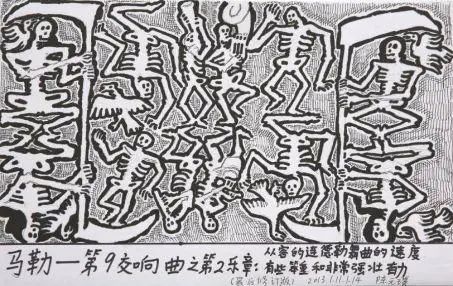 马勒—第9交响曲之第2乐章:
从容的连德勒舞曲的速度
有些笨重和非常强壮有力
(最后修订版) 2013.1.11-1.14